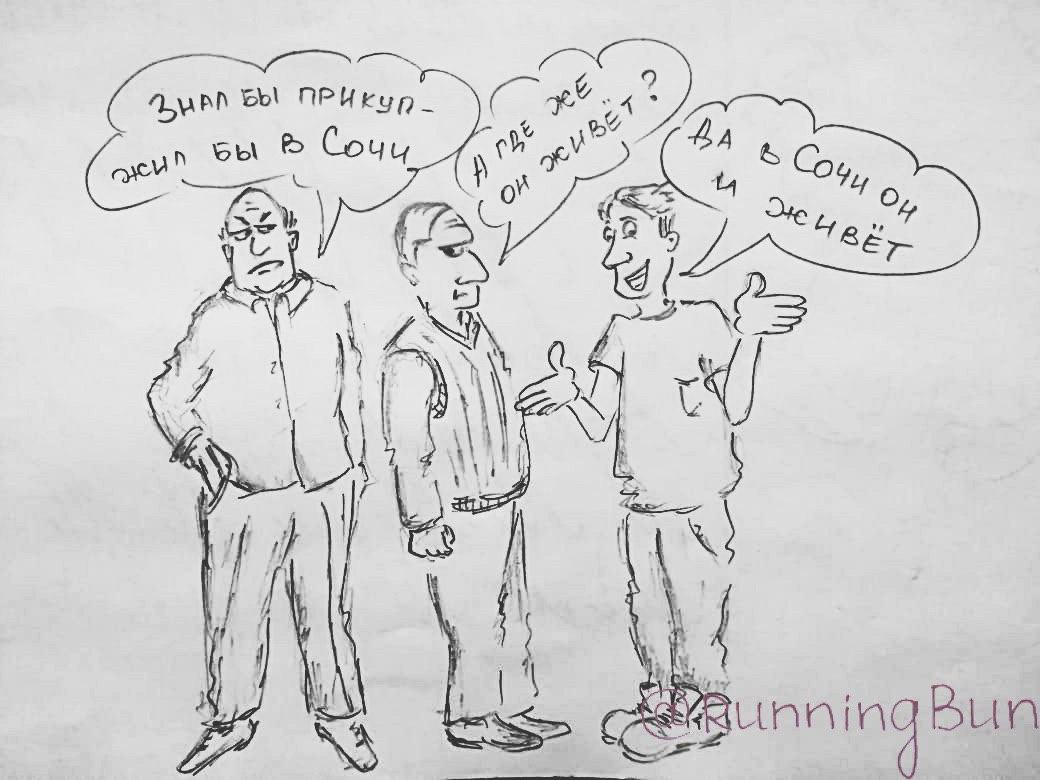 Знал бы прикуп -
жил бы в Сочи
А где же
он живёт?
Да в Сочи он
и живёт
@RunningBun